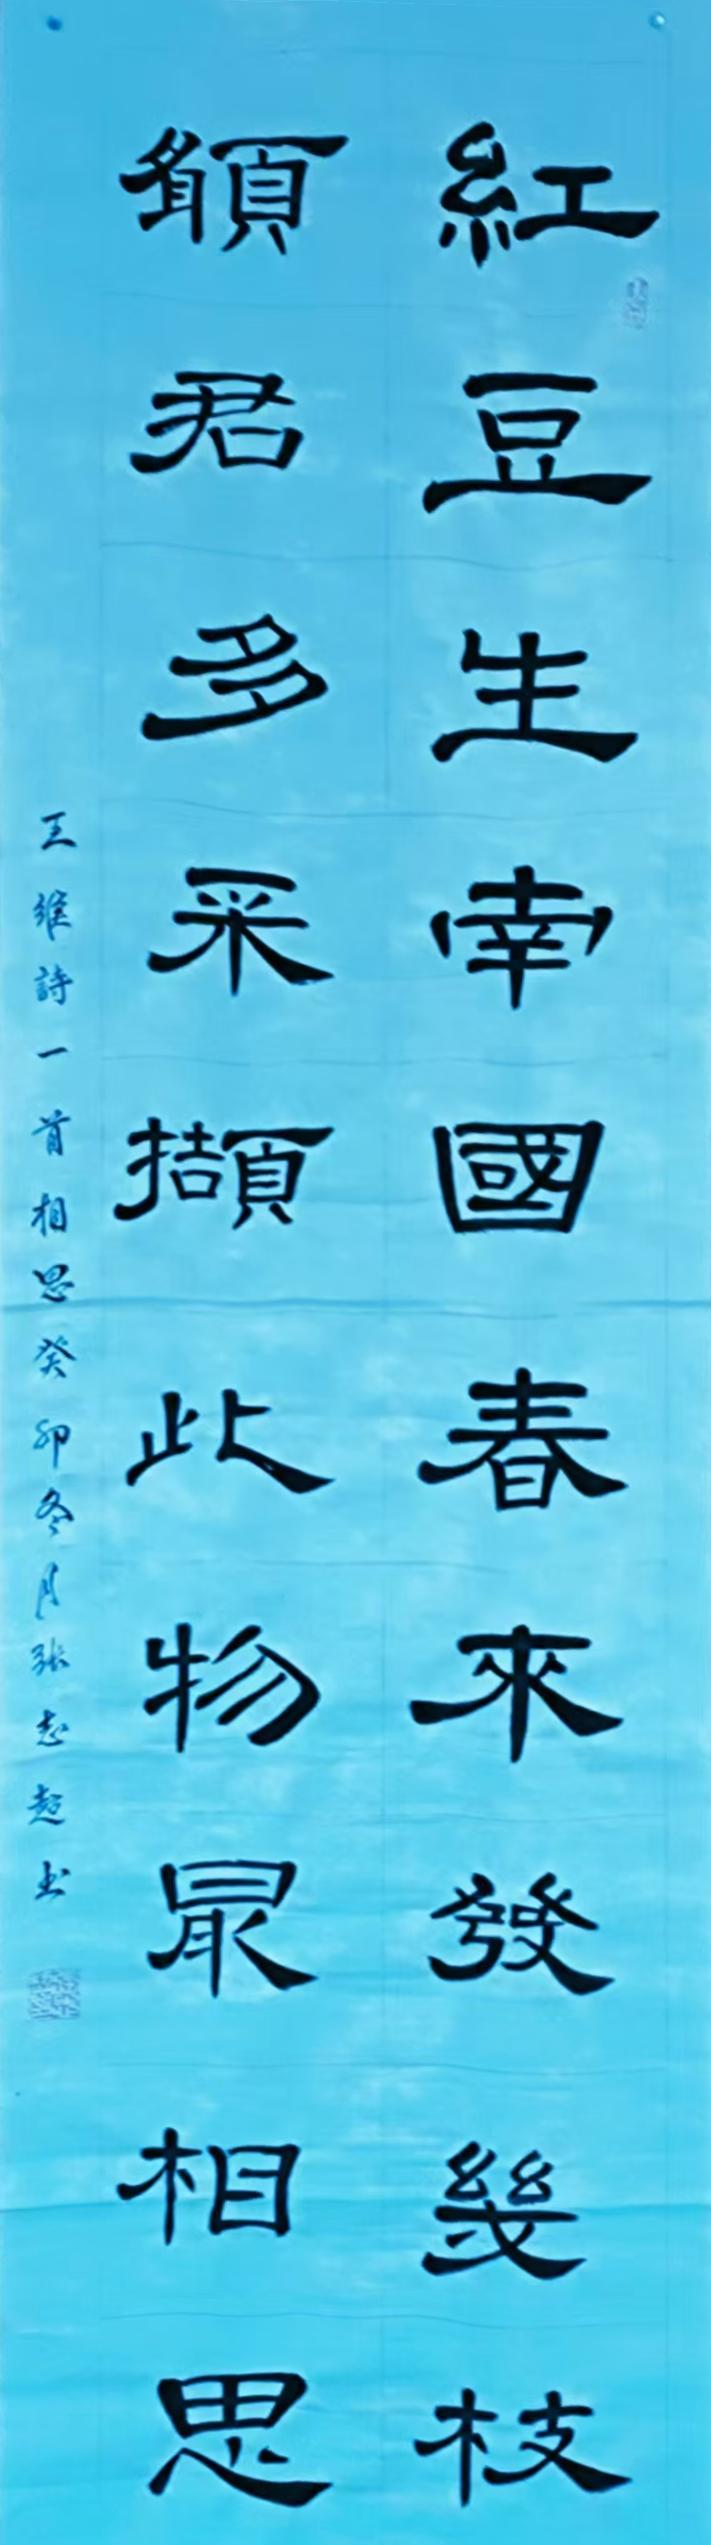 紅豆生南國春來發幾枝
願君多采擷此物最相思
王維詩一首相思癸卯冬月张志超书